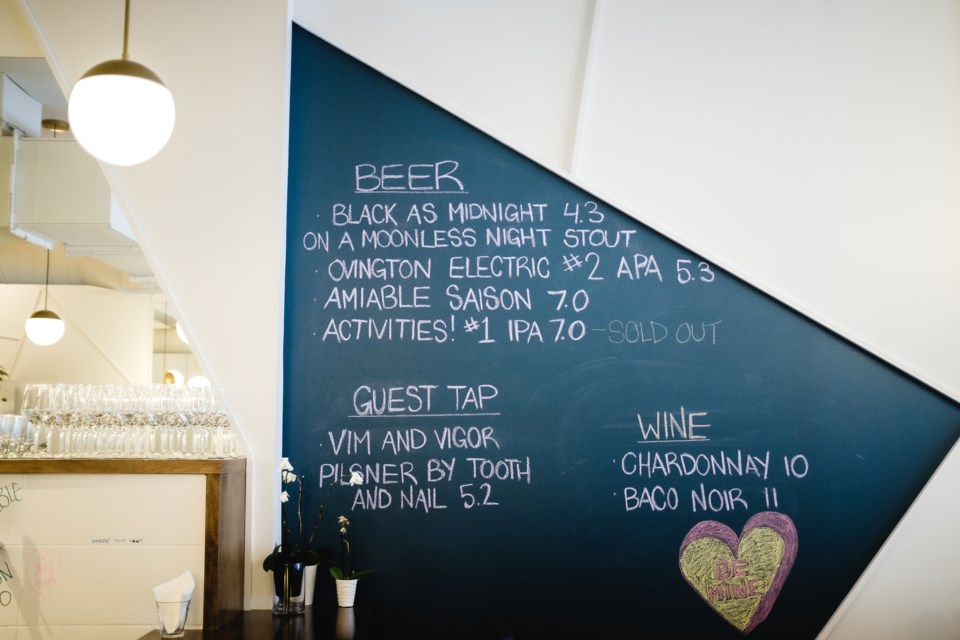 BEER
· BLACK AS MIDNIGHT 4.3
ON A MOONLESS NIGHT STOUT
· OVINGTON ELECTRIC #2 APA 5.3
· AMIABLE SAISON 7.0
· ACTIVITIES! #1 IPA 7.0 - SOLD OUT
GUEST TAP
· VIM AND VIGOR
PILSNER BY TOOTH
AND NAIL 5.2
WINE
· CHARDONNAY 10
· BACO NOIR 11
BE
MINE